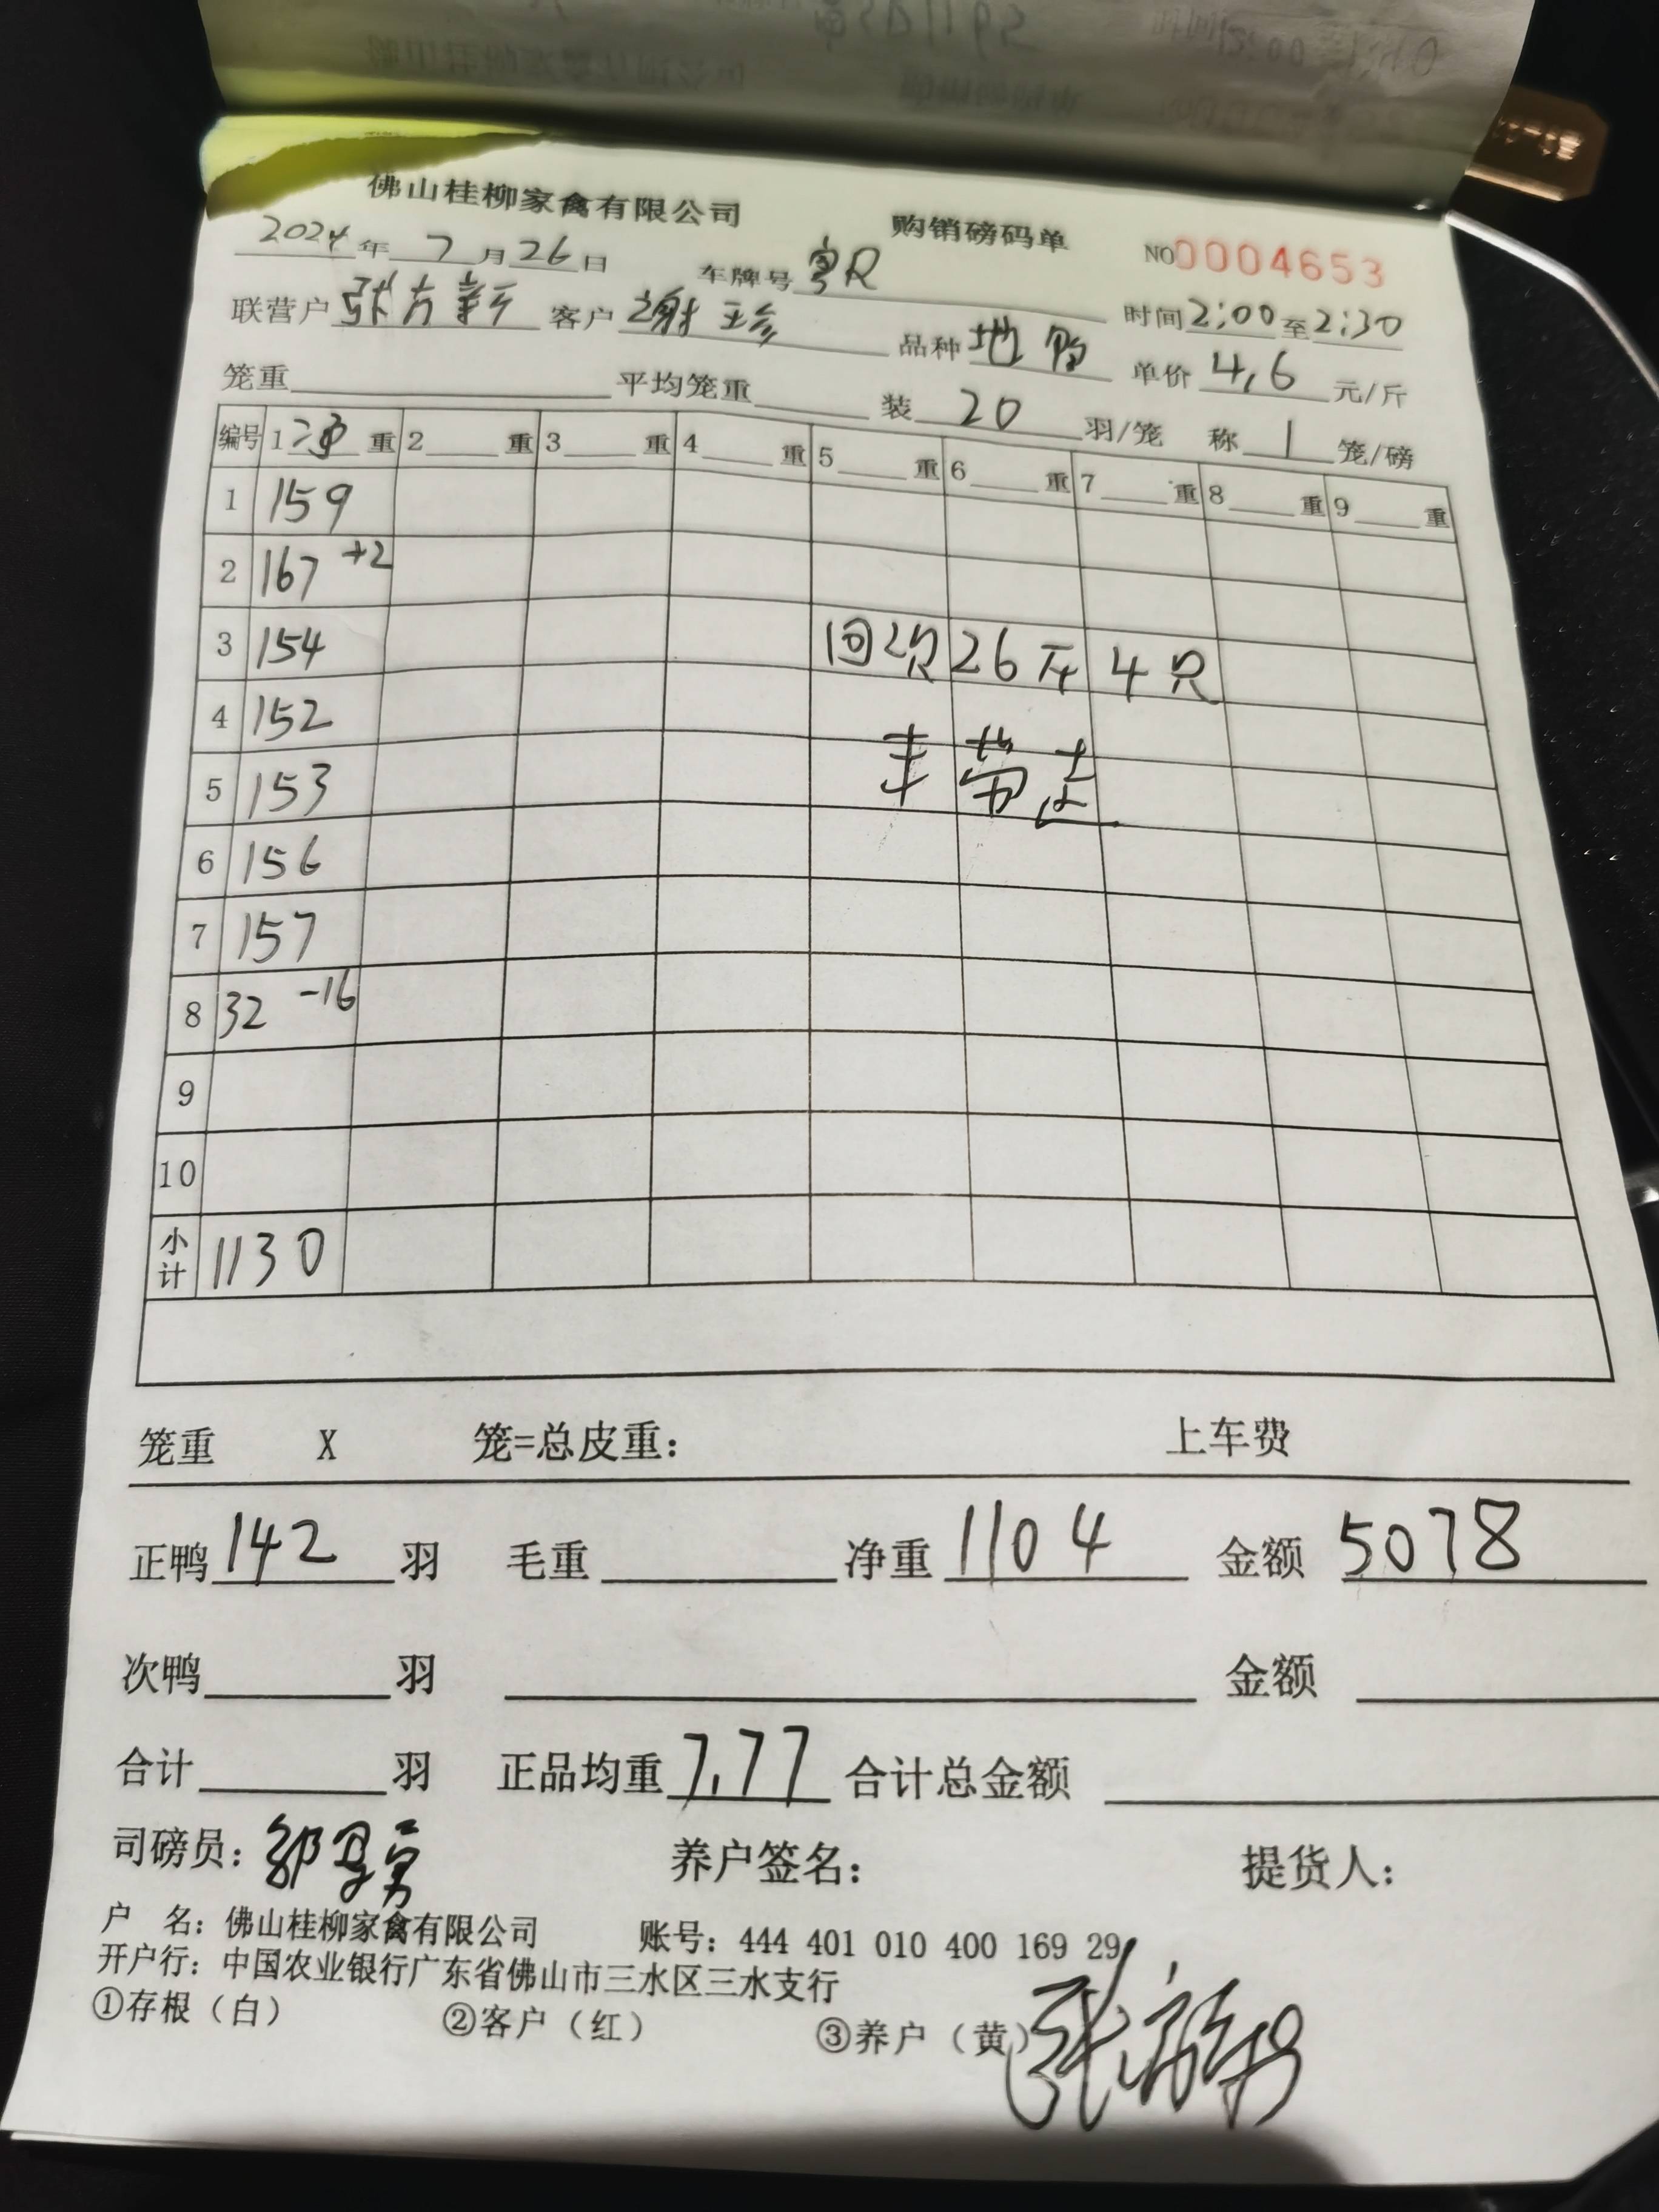 佛山桂柳家禽有限公司 购销磅码单 NO 0004653
2024年 7 月 26 日 车牌号
联营户 张方新 客户 谢珍 品种 地 时间 2:00 至 2:30
单价 4,6 元/斤
笼重 平均笼重 装 20 羽/笼 称 1 笼/磅
编号 1 净 重 2 重 3 重 4 重 5 重 6 重 7 重 8 重 9 重
1 159
2 167 +2
3 154 回次 26斤 4只
4 152
5 153
6 156
7 157
8 32 -16
9
10
小计 1130
笼重 X 笼=总皮重： 上车费
正鸭 142 羽 毛重 净重 1104 金额 5078
次鸭 羽 金额
合计 羽 正品均重 7.77 合计总金额
司磅员： 养户签名： 提货人：
户 名：佛山桂柳家禽有限公司 账号：444 401 010 400 169 29
开户行：中国农业银行广东省佛山市三水区三水支行
①存根（白） ②客户（红） ③养户（黄）